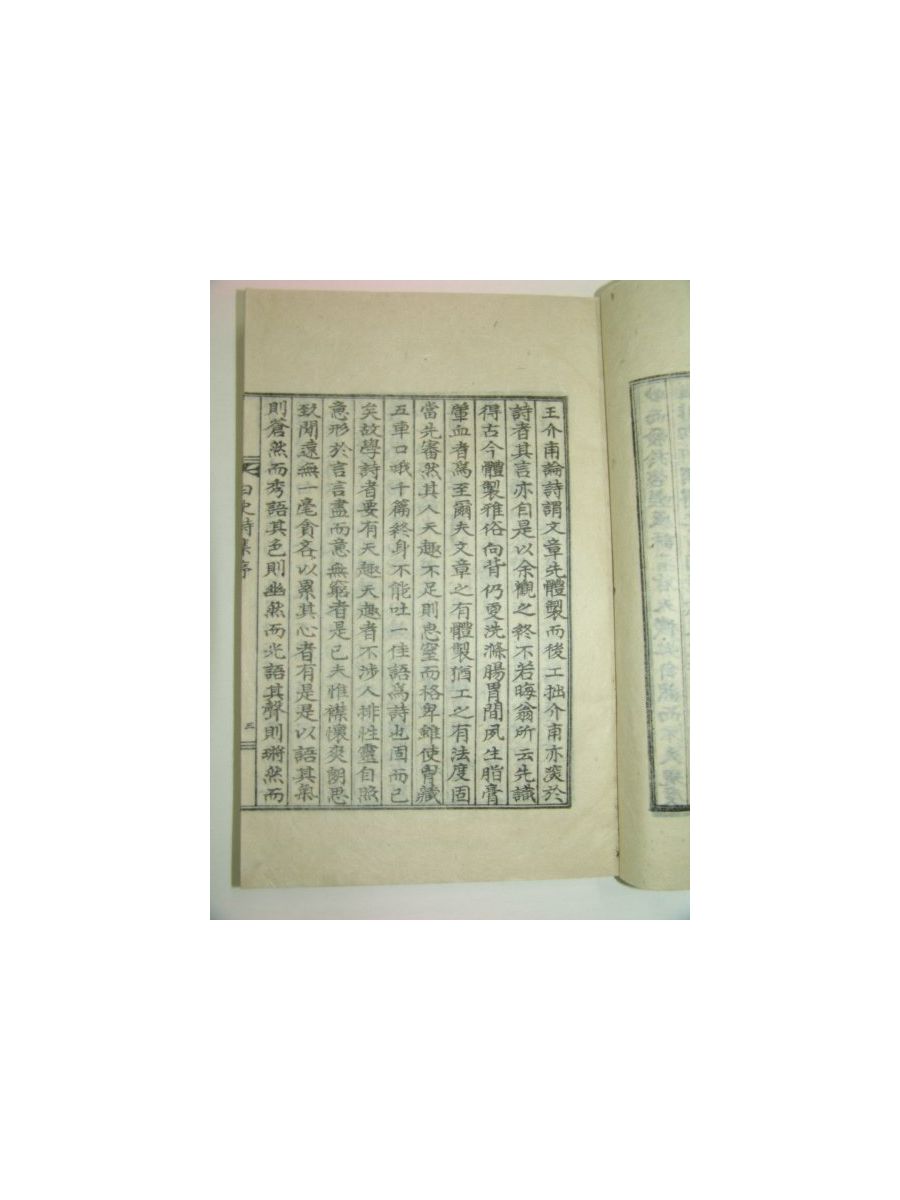 王介甫論詩謂文章先體製而後工拙介甫亦深於
詩者其言亦自是以余觀之終不若晦翁所云先識
得古今體製雅俗向背仍更洗滌腸胃間夙生脂膏
葷血者爲至爾夫文章之有體製猶工之有法度固
當先審然其人天趣不足則思窒而格卑雖使胷藏
五車口哦千篇終身不能吐一佳語爲詩也固而已
矣故學詩者要有天趣天趣者不涉人排性靈自照
意形於言言盡而意無窮者是已夫惟襟懷爽朗思
致閒遠無一毫貪吝以累其心者有是是以語其氣
則蒼然而秀語其色則幽然而光語其聲則瑯然而
史詩集序
三